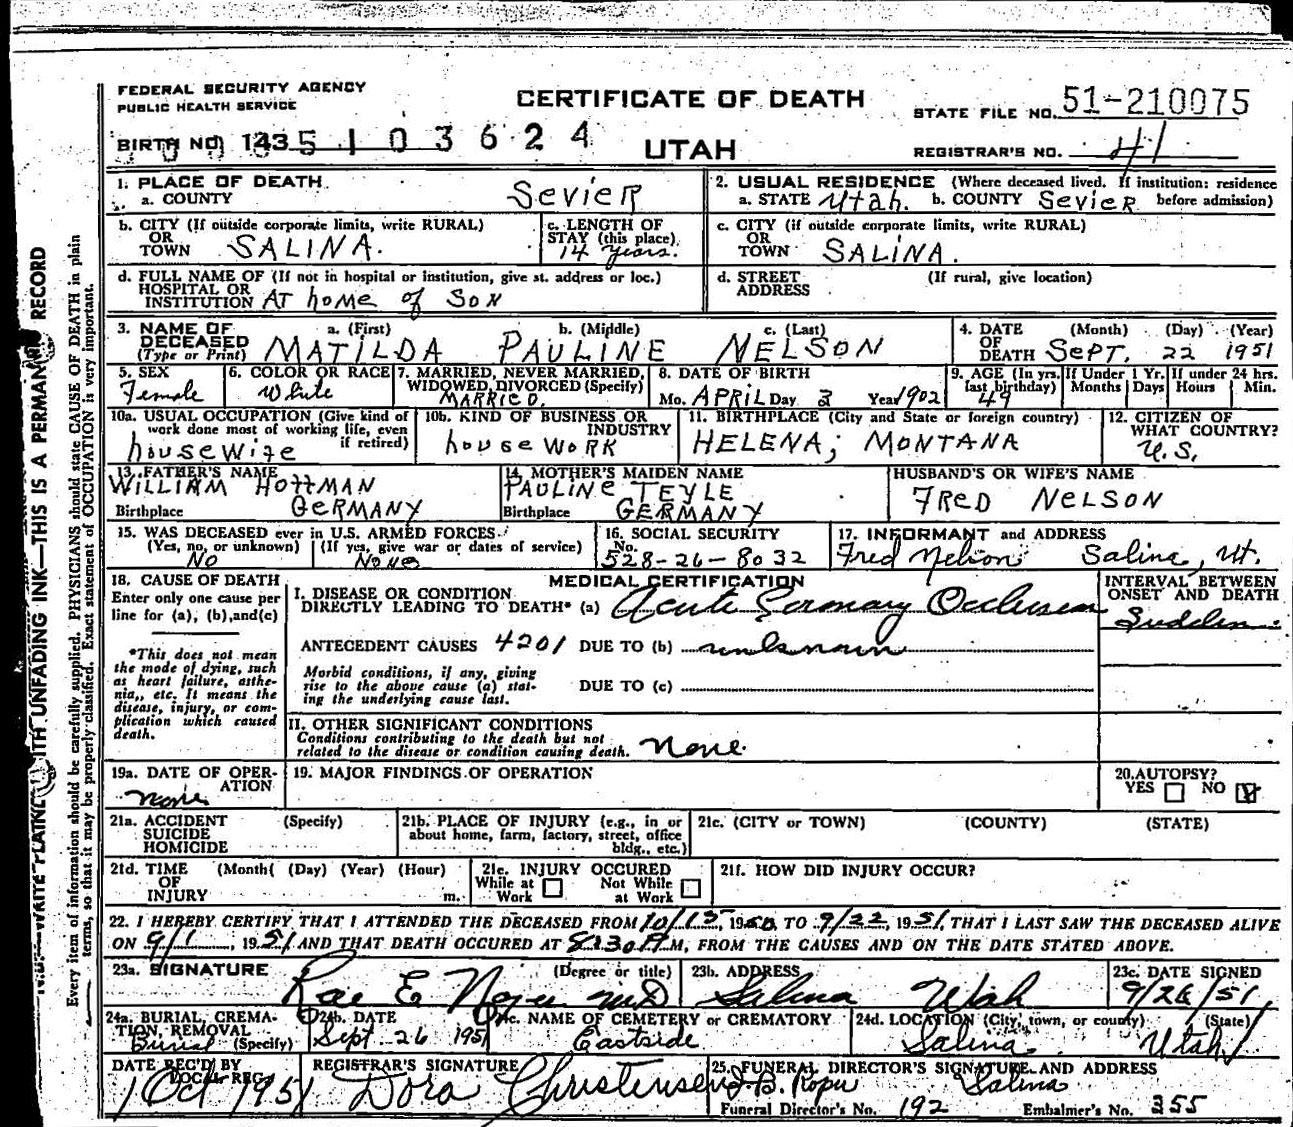 FEDERAL SECURITY AGENCY
PUBLIC HEALTH SERVICE
CERTIFICATE OF DEATH
STATE FILE NO. 51-210075
BIRTH NO. 143 5 1 0 3 6 2 4
UTAH
REGISTRAR'S NO. 41
1. PLACE OF DEATH
a. COUNTY SEViER
2. USUAL RESIDENCE (Where deceased lived. If institution: residence before admission)
a. STATE Utah. b. COUNTY SEViER
b. CITY (If outside corporate limits, write RURAL)
OR
TOWN SALINA.
c. LENGTH OF
STAY (this place)
14 Years.
c. CITY (if outside corporate limits, write RURAL)
OR
TOWN SALiNA.
d. FULL NAME OF (If not in hospital or institution, give st. address or loc.)
HOSPITAL OR
INSTITUTION AT home of SON
d. STREET (If rural, give location)
ADDRESS
3. NAME OF
DECEASED
(Type or Print)
a. (First) b. (Middle) c. (Last)
MATILDA PAULINE NELSON
4. DATE OF DEATH (Month) (Day) (Year)
SEPT. 22 1951
5. SEX
Female
6. COLOR OR RACE
White
7. MARRIED, NEVER MARRIED,
WIDOWED, DIVORCED (Specify)
MARRIED.
8. DATE OF BIRTH
Mo. APRIL Day 3 Year 1902
9. AGE (In yrs. last birthday) If Under 1 Yr. Months Days If under 24 hrs. Hours Min.
49
10a. USUAL OCCUPATION (Give kind of
work done most of working life, even
if retired)
housewife
10b. KIND OF BUSINESS OR
INDUSTRY
house WORK
11. BIRTHPLACE (City and State or foreign country)
HELENA; MONTANA
12. CITIZEN OF
WHAT COUNTRY?
U.S.
13. FATHER'S NAME
WILLIAM HOffMAN
Birthplace GERMANY
14. MOTHER'S MAIDEN NAME
PAULINE TEYLE
Birthplace GERMANY
HUSBAND'S OR WIFE'S NAME
FRED NELSON
15. WAS DECEASED ever in U.S. ARMED FORCES.
(Yes, no, or unknown) (If yes, give war or dates of service)
No None
16. SOCIAL SECURITY
No.
528-26-8032
17. INFORMANT and ADDRESS
Fred Nelson Salina, Ut.
18. CAUSE OF DEATH
Enter only one cause per
line for (a), (b), and (c)
*This does not mean
the mode of dying, such
as heart failure, asthe-
nia, etc. It means the
disease, injury, or com-
plication which caused
death.
MEDICAL CERTIFICATION
I. DISEASE OR CONDITION
DIRECTLY LEADING TO DEATH* (a) Acute Coronary Occlusion
ANTECEDENT CAUSES 4201 DUE TO (b) unknown
Morbid conditions, if any, giving
rise to the above cause (a) stat-
ing the underlying cause last.
DUE TO (c)
II. OTHER SIGNIFICANT CONDITIONS
Conditions contributing to the death but not
related to the disease or condition causing death. None
INTERVAL BETWEEN
ONSET AND DEATH
Sudden
19a. DATE OF OPER-
ATION
None
19. MAJOR FINDINGS OF OPERATION
20. AUTOPSY?
YES NO
21a. ACCIDENT (Specify)
SUICIDE
HOMICIDE
21b. PLACE OF INJURY (e.g., in or
about home, farm, factory, street, office
bldg., etc.)
21c. (CITY or TOWN) (COUNTY) (STATE)
21d. TIME (Month( (Day) (Year) (Hour)
OF
INJURY m.
21e. INJURY OCCURED
While at Work Not While at Work
21f. HOW DID INJURY OCCUR?
22. I HEREBY CERTIFY THAT I ATTENDED THE DECEASED FROM 10/15, 1950 TO 9/22, 1951, THAT I LAST SAW THE DECEASED ALIVE
ON 9/1, 1951 AND THAT DEATH OCCURED AT 8:30 A M, FROM THE CAUSES AND ON THE DATE STATED ABOVE.
23a. SIGNATURE (Degree or title)
Rae E Noyes MD
23b. ADDRESS
Salina Utah
23c. DATE SIGNED
9/26/51
24a. BURIAL, CREMA-
TION, REMOVAL
Burial (Specify)
24b. DATE
Sept 26 1951
24c. NAME OF CEMETERY or CREMATORY
Eastside
24d. LOCATION (City, town, or county) (State)
Salina Utah
DATE REC'D BY
LOCAL REG.
1 Oct 1951
REGISTRAR'S SIGNATURE
Dora Christensen
25. FUNERAL DIRECTOR'S SIGNATURE AND ADDRESS
Salina
Funeral Director's No. 192 Embalmer's No. 355
WRITE PLAINLY WITH UNFADING INK—THIS IS A PERMANENT RECORD
Every item of information should be carefully supplied. PHYSICIANS should state CAUSE OF DEATH in plain
terms, so that it may be properly classified. Exact statement of OCCUPATION is very important.